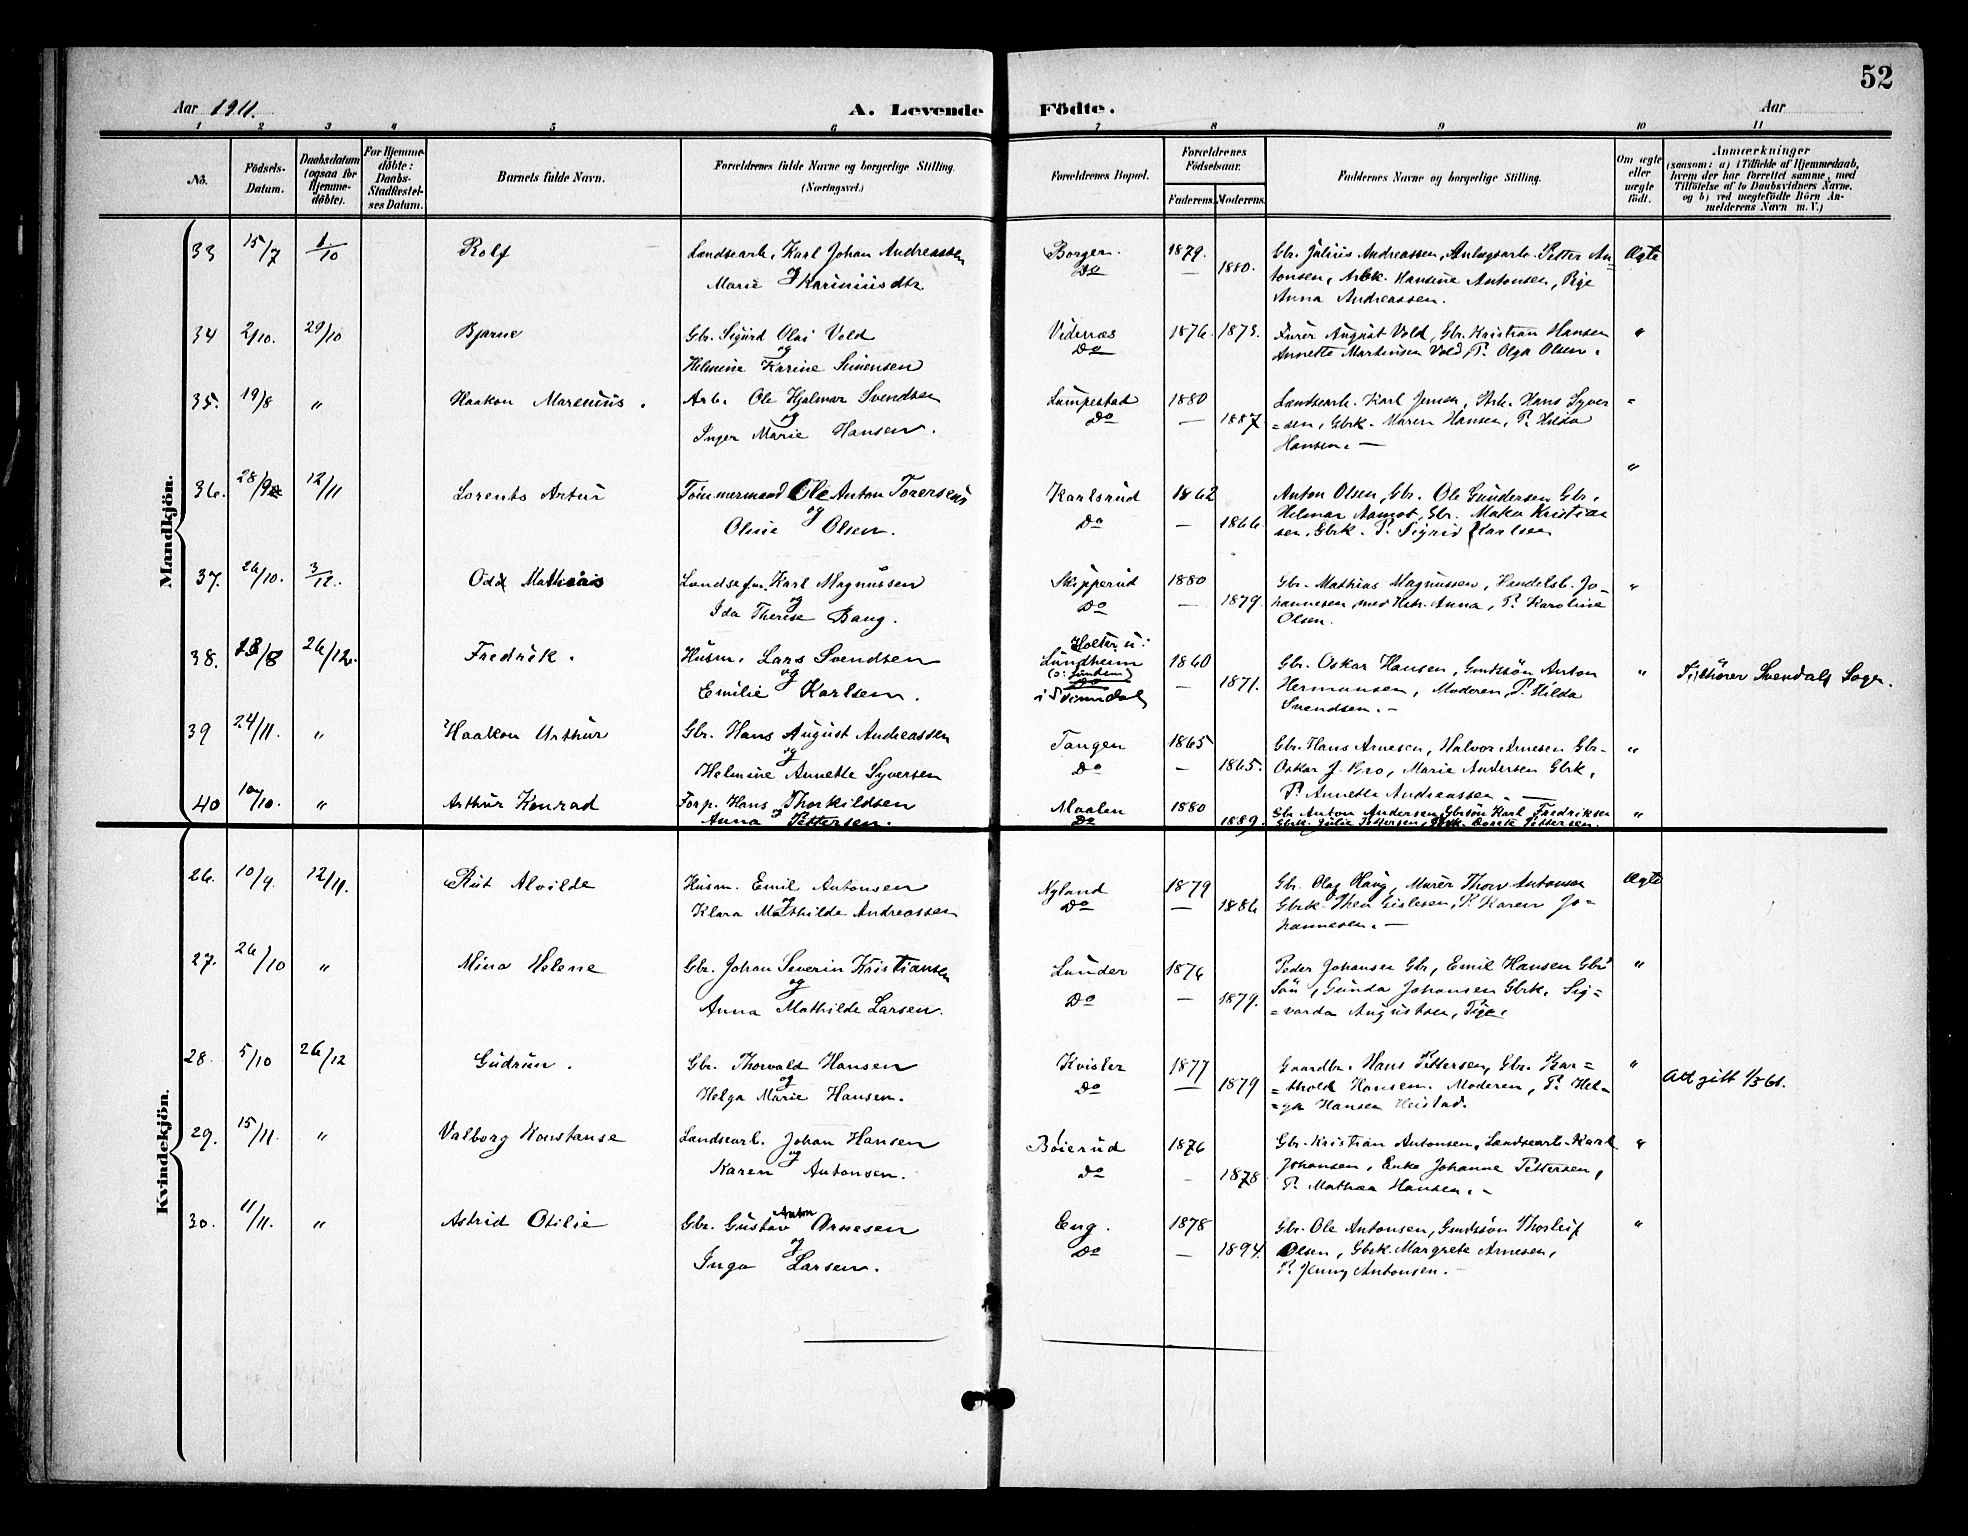 52
Aar 1911.
A. Levende Födte.
Aar
1 2 3 4 5 6 7 8 9 10 11
No.
Födsels-Datum.
Daabsdatum (ogsaa for Hjemme-döbte).
For Hjemme-döbte: Daabs-Stadfæstel-ses Datum.
Barnets fulde Navn.
Forældrenes fulde Navne og borgerlige Stilling. (Næringsvei.)
Forældrenes Bopæl.
Forældrenes Födselsaar.
Faderens. Moderens.
Faddernes Navne og borgerlige Stilling.
Om ægte eller uægte födt.
Anmærkninger
(saasom: a) i Tilfælde af Hjemmedaab,
hvem der har forrettet samme, med
Tilföielse af to Daabsvidners Navne.
og b) ved uægtefödte Börn An-
melderens Navn m. V.)
Mandkjön.
33 15/7 1/10 Rolf Landsearb. Karl Johan Andreassen Borgen. 1879. Gbr. Julius Andreassen, Anlægsarb. Petter An= Ægte
og Do — 1880. tonsen, Arbk. Hansine Antonsen, Pige
Marie Kariniusdtr. Anna Andreassen.
34 2/10. 29/10 Bjarne Gbr. Sigurd Olai Vold Vidernæs 1876. 1873. Furer August Vold, Gbr. Kristian Hansen "
og Do Annette Martinsen Vold, P. Olga Olsen.
Helmine Karine Simensen
35. 19/8 " Haakon Marenius. Arb. Ole Hjalmar Svendsen Lumpestad 1880 Landsearb. Karl Jensen, Arb. Hans Syver "
og Do — 1887. =sen, Gbrk. Maren Hansen, P. Hilda
Inger Marie Hansen. Hansen. —
36. 28/9 12/11 Lorents Artur Tømmermand Ole Anton Torersen Karlsrud 1862 Anton Olsen, Gbr. Ole Gundersen Gbr, "
og Do — 1866. Helmar Aamot, Gbr. Kristian
Oline Olsen. sen, Gbrk. P. Sigrid Karlsen
37. 26/10. 3/12. Odd Mathias Karl Magnussen Skipperud 1880 Gbr. Mathias Magnussen, Handelsb. Jo- "
og Do — 1879. hannesen med Hstr. Anna, P. Karoline
Ida Therese Bang. Olsen.
38. 18/8 26/12. Fredrik. Husm. Lars Svendsen Holter u: Lundheim 1860 Gbr. Oskar Hansen, Gmdssøn Anton " Tilhører Svendals Sogn.
og Do — 1871. Hermansen, Moderen, P. Hilda
Emilie Karlsen. Svendsen. —
39 24/11. " Haakon Arthur Gbr. Hans August Andreassen Tangen 1865 Gbr. Hans Arnesen, Halvor Arnesen Gbr- "
og Do — 1865. Oskar J. Bro, Marie Andersen Gbrk,
Helmine Annette Syversen P. Annette Andreassen —
40 10/10. " Arthur Konrad Forp. Hans Thorkildsen Maalen 1880 Gbr Anton Andersen, Gbrsøn Karl Fredriksen "
og Anna Pettersen. Do 1889. Gbrk. Julie Pettersen, Pettersen.
Kvindekjön.
26. 10/9. 12/11. Rut Alvilde Husm. Emil Antonsen Nyland 1879 Gbr. Olaf Haug, Murer Thorv Antonsen Ægte
og Do — 1886 Gbrk. Thea Gislesen, P. Karen Jo-
Klara Mathilde Andreassen hannesen. —
27. 26/10 " Mina Helene Gbr. Johan Severin Kristiansen Lunder 1876 Peder Johansen Gbr, Emil Hansen Gbr "
og Do — 1879. Søn, Gunda Johansen Gbrk, Sig=
Anna Mathilde Larsen. =varda Augustsen, Pige.
28. 5/10 26/12 Gudrun. Gbr. Thorvald Hansen Kvisler 1877 Gaardbr. Hans Pettersen, Gbr. Kar= " Att gitt 1/3 61.
og Do — 1879 =thold Hansen. Moderen, P. Hel-
Helga Marie Hansen. =ga Hansen Heistad.
29. 15/11. " Valborg Konstanse Landsearb. Johan Hansen Bøierud 1876 Gbr. Kristian Antonsen, Landsearb. Karl "
og Do — 1878 Johansen, Enke Johanne Pettersen,
Karen Antonsen. P. Mathea Hansen. —
30. 11/11. " Astrid Otilie Gbr. Gustav Anton Arnesen Eng. 1878 Gbr. Ole Antonsen, Gmdssøn Thorleif "
og Do — 1894. Olsen, Gbrk. Margrete Arnesen,
Inga Larsen. P. Jenny Antonsen. —